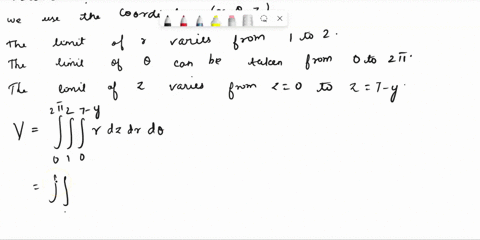 we use the coordin
The limit of r varies from 1 to 2.
The limit of θ can be taken from 0 to 2π.
The limit of z varies from z=0 to z=7-y.
V = ∫₀^{2π} ∫₁^{2} ∫₀^{7-y} r dz dr dθ
= ∫∫